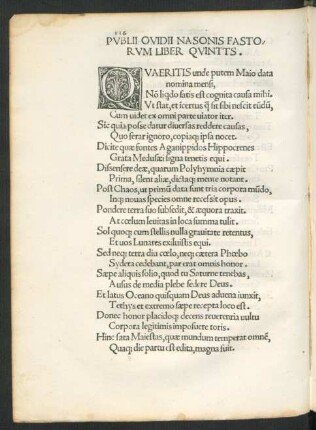 116
PVBLII OVIDII NASONIS FASTO-
RVM LIBER QVINTVS.
QVAERITIS unde putem Maio data
nomina mensi,
Nō liqdo satis est cognita causa mihi.
Vt stat, et īcertus q̄ sit sibi nescit eūdū,
Cum uidet ex omni parte uiator iter.
Sic quia posse datur diuersas reddere causas,
Quo ferar ignoro, copiaq; ipsa nocet.
Dicite quæ fontes Aganippidos Hippocrenes
Grata Medusæi signa tenetis equi.
Dissensere deæ, quarum Polyhymnia cœpit
Prima, silent aliæ, dictaq; mente notant.
Post Chaos, ut primū data sunt tria corpora mūdo,
Inq; nouas species omne recessit opus.
Pondere terra suo subsedit, & æquora traxit.
At cœlum leuitas in loca summa tulit.
Sol quoq; cum stellis nulla grauitate retentus,
Et uos Lunares exiluistis equi.
Sed neq; terra diu cœlo, neq; cætera Phœbo
Sydera cedebant, par erat omnis honor.
Sæpe aliquis solio, quod tu Saturne tenebas,
Ausus de media plebe sedere Deus.
Et latus Oceano quisquam Deus aduena iunxit,
Tethys et extremo sæpe recepta loco est.
Donec honor placidoq; decens reuerentia uultu
Corpora legitimis imposuere toris.
Hinc sata Maiestas, quæ mundum temperat omnē,
Quaq; die partu est edita, magna fuit.